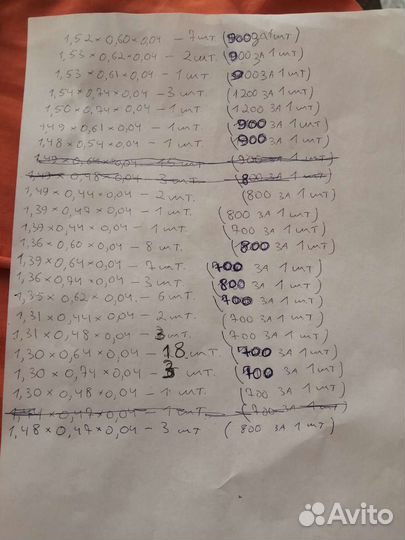 1,52 × 0,60 × 0,04 – 7 шт (900 за 1 шт)
1,53 × 0,62 × 0,04 – 2 шт (900 за 1 шт)
1,53 × 0,61 × 0,04 – 1 шт (900 за 1 шт)
1,54 × 0,74 × 0,04 – 3 шт (1200 за 1 шт)
1,50 × 0,74 × 0,04 – 1 шт (1200 за 1 шт)
1,49 × 0,61 × 0,04 – 1 шт (900 за 1 шт)
1,48 × 0,54 × 0,04 – 1 шт. (900 за 1 шт)
1,49 × 0,64 × 0,04 – 15 шт (900 за 1 шт)
1,49 × 0,48 × 0,04 – 3 шт (800 за 1 шт)
1,49 × 0,44 × 0,04 – 2 шт. (800 за 1 шт)
1,39 × 0,47 × 0,04 – 1 шт. (800 за 1 шт)
1,39 × 0,44 × 0,04 – 1 шт. (700 за 1 шт)
1,36 × 0,60 × 0,04 – 8 шт. (800 за 1 шт)
1,39 × 0,64 × 0,04 – 7 шт. (700 за 1 шт)
1,36 × 0,74 × 0,04 – 3 шт. (800 за 1 шт)
1,35 × 0,62 × 0,04 – 6 шт. (700 за 1 шт)
1,31 × 0,44 × 0,04 – 2 шт. (700 за 1 шт)
1,31 × 0,48 × 0,04 – 3 шт. (700 за 1 шт)
1,30 × 0,64 × 0,04 – 18 шт. (700 за 1 шт)
1,30 × 0,74 × 0,04 – 3 шт. (700 за 1 шт)
1,30 × 0,48 × 0,04 – шт. (700 за 1 шт)
× 0,47 × 0,04 – 1 шт. (700 за 1 шт)
1,48 × 0,47 × 0,04 – 3 шт (800 за 1 шт)
Avito